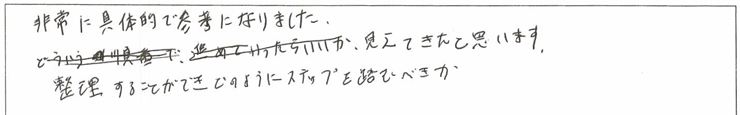 非常に具体的で参考になりました.
どういう順番で、進めていったらいいか、見えてきたと思います.
整理することができどのようにステップを踏むべきか